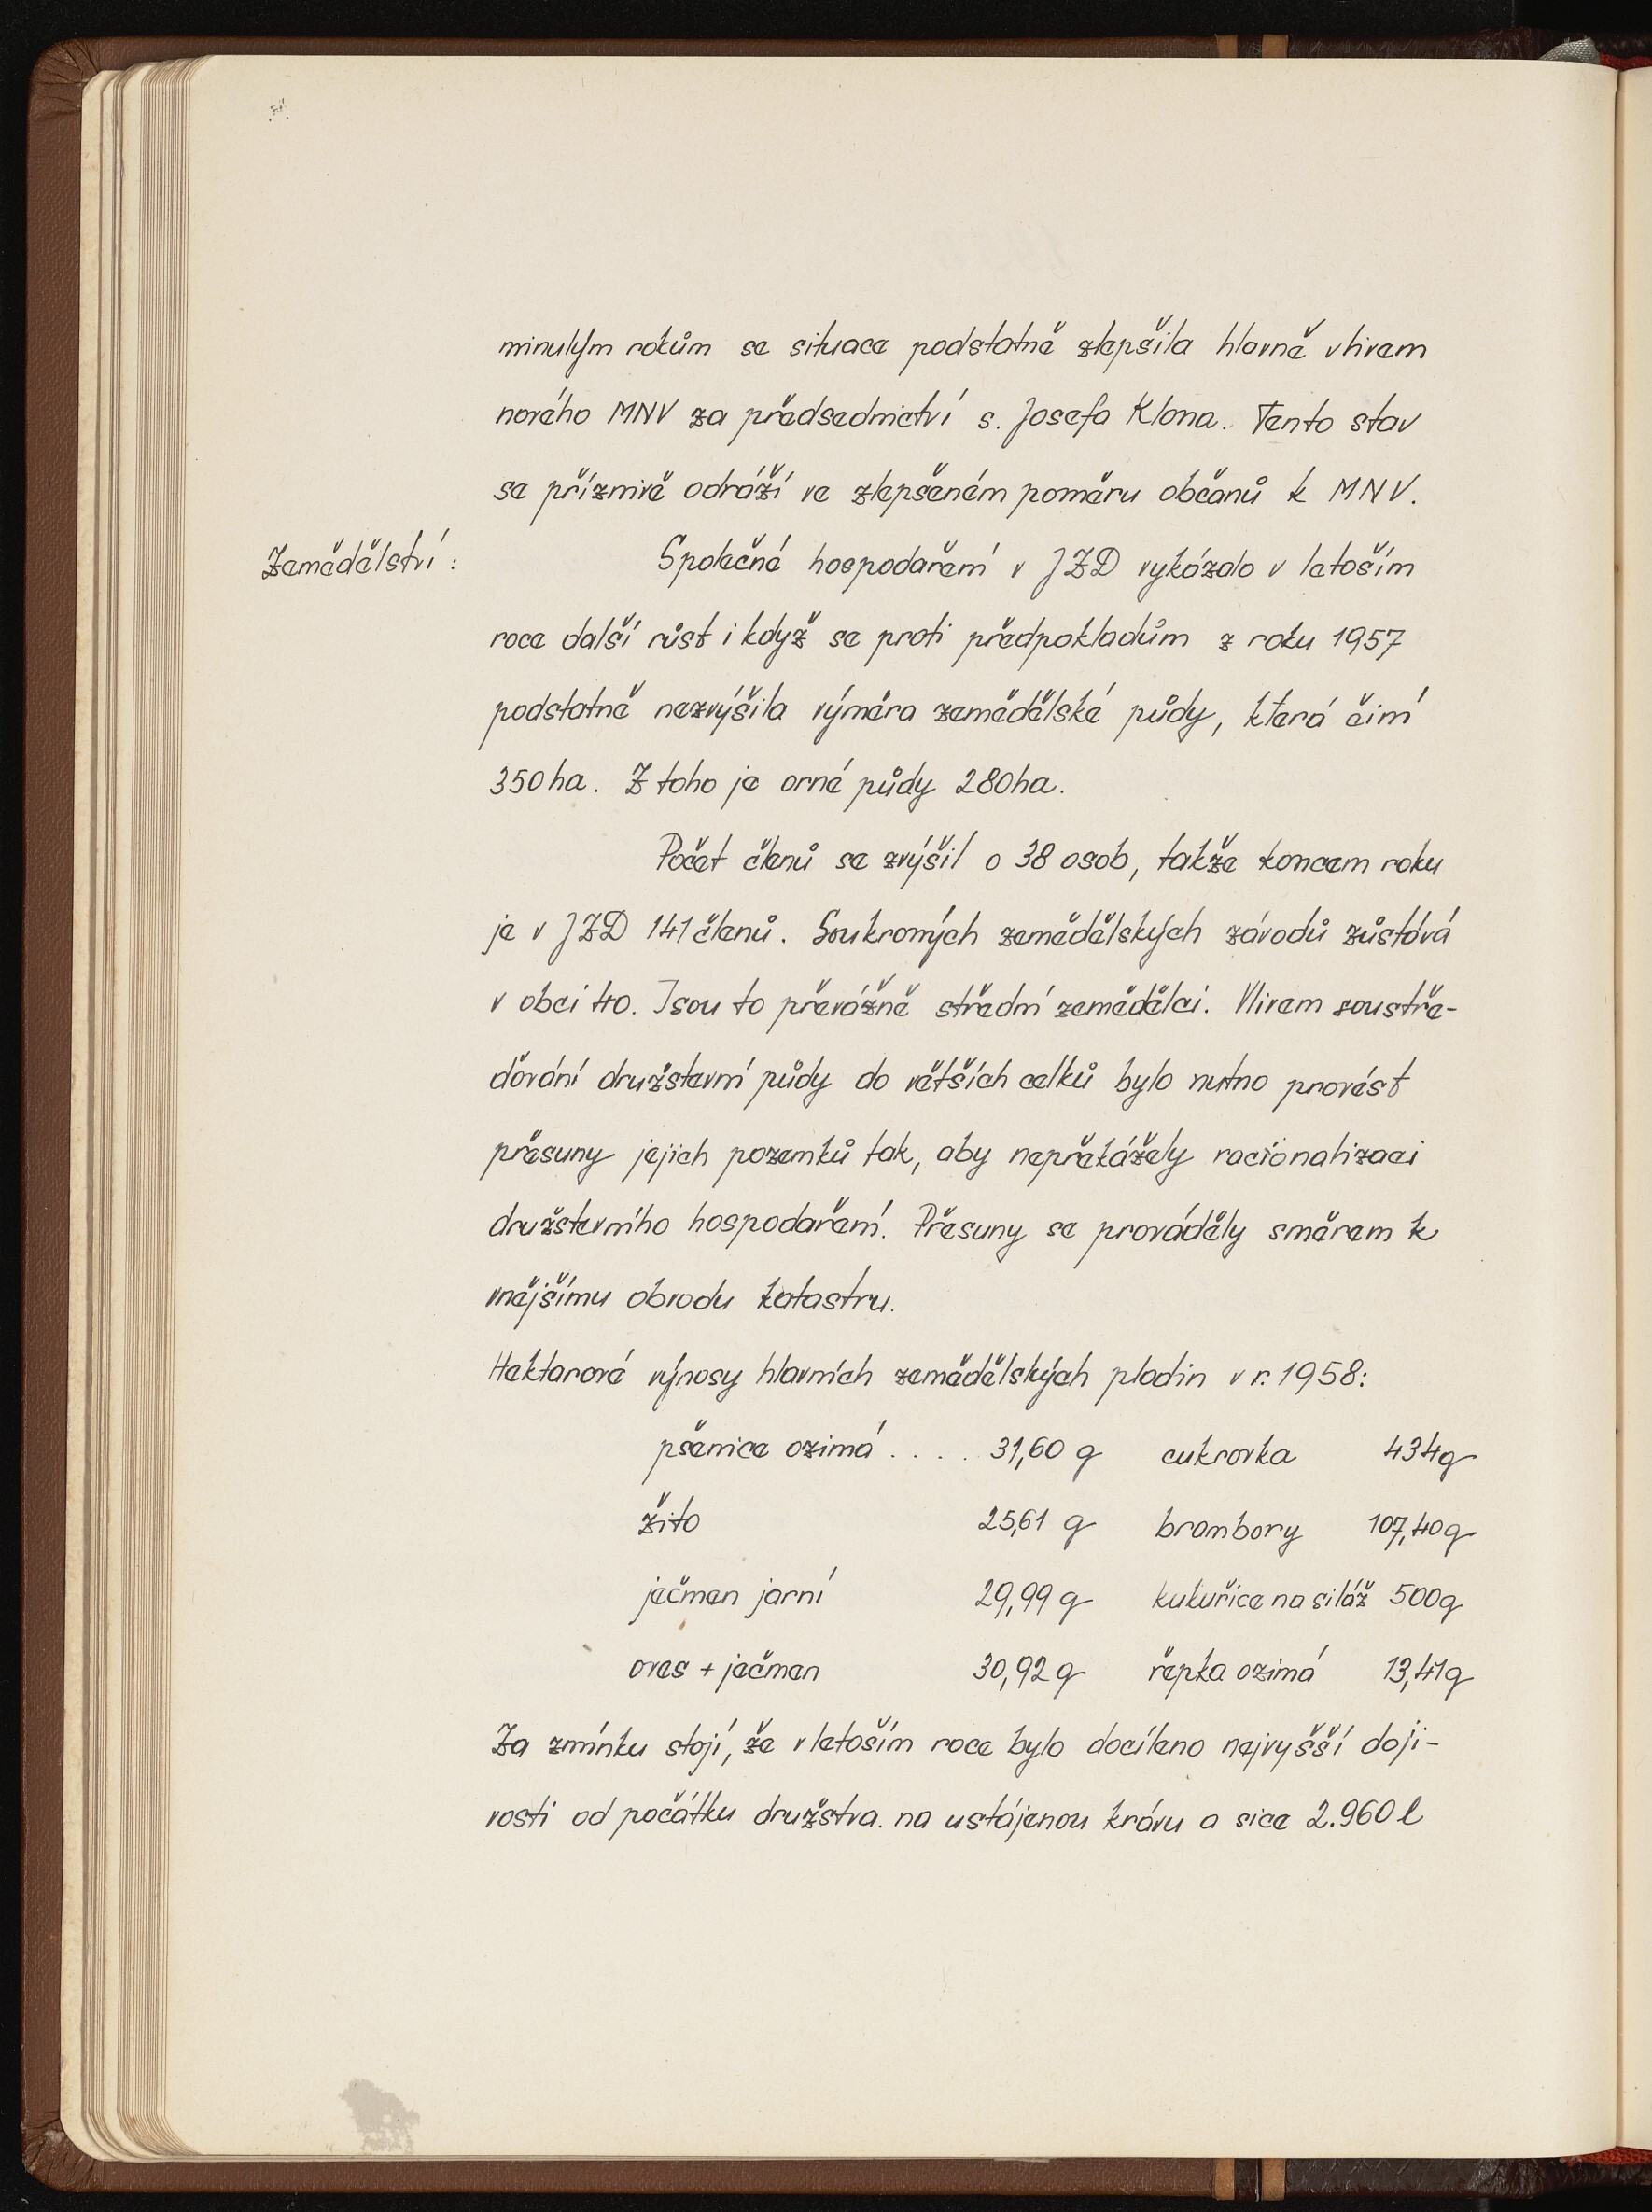 minulým rokům se situace podstatně zlepšila hlavně vlivem
nového MNV za předsednictví s. Josefa Klona. Tento stav
se příznivě odráží ve zlepšeném poměru občanů k MNV.
Zemědělství: Společné hospodaření v JZD vykázalo v letoším
roce další růst i když se proti předpokladům z roku 1957
podstatně nezvýšila výměra zemědělské půdy, která činí
350 ha. Z toho je orné půdy 280 ha.
Počet členů se zvýšil o 38 osob, takže koncem roku
je v JZD 141 členů. Soukromých zemědělských závodů zůstává
v obci 40. Jsou to převážně střední zemědělci. Vlivem soustře-
ďování družstevní půdy do větších celků bylo nutno provést
přesuny jejich pozemků tak, aby nepřekážely racionalizaci
družstevního hospodaření. Přesuny se prováděly směrem k
vnějšímu obvodu katastru.
Hektarové výnosy hlavních zemědělských plodin v r. 1958:
pšenice ozimá .... 31,60 q cukrovka 434 q
žito 25,61 q brambory 107,40 q
ječmen jarní 29,99 q kukuřice na siláž 500 q
oves + ječmen 30,92 q řepka ozimá 13,41 q
Za zmínku stojí, že v letoším roce bylo docíleno nejvyšší doji-
vosti od počátku družstva. na ustájenou krávu a sice 2.960 l